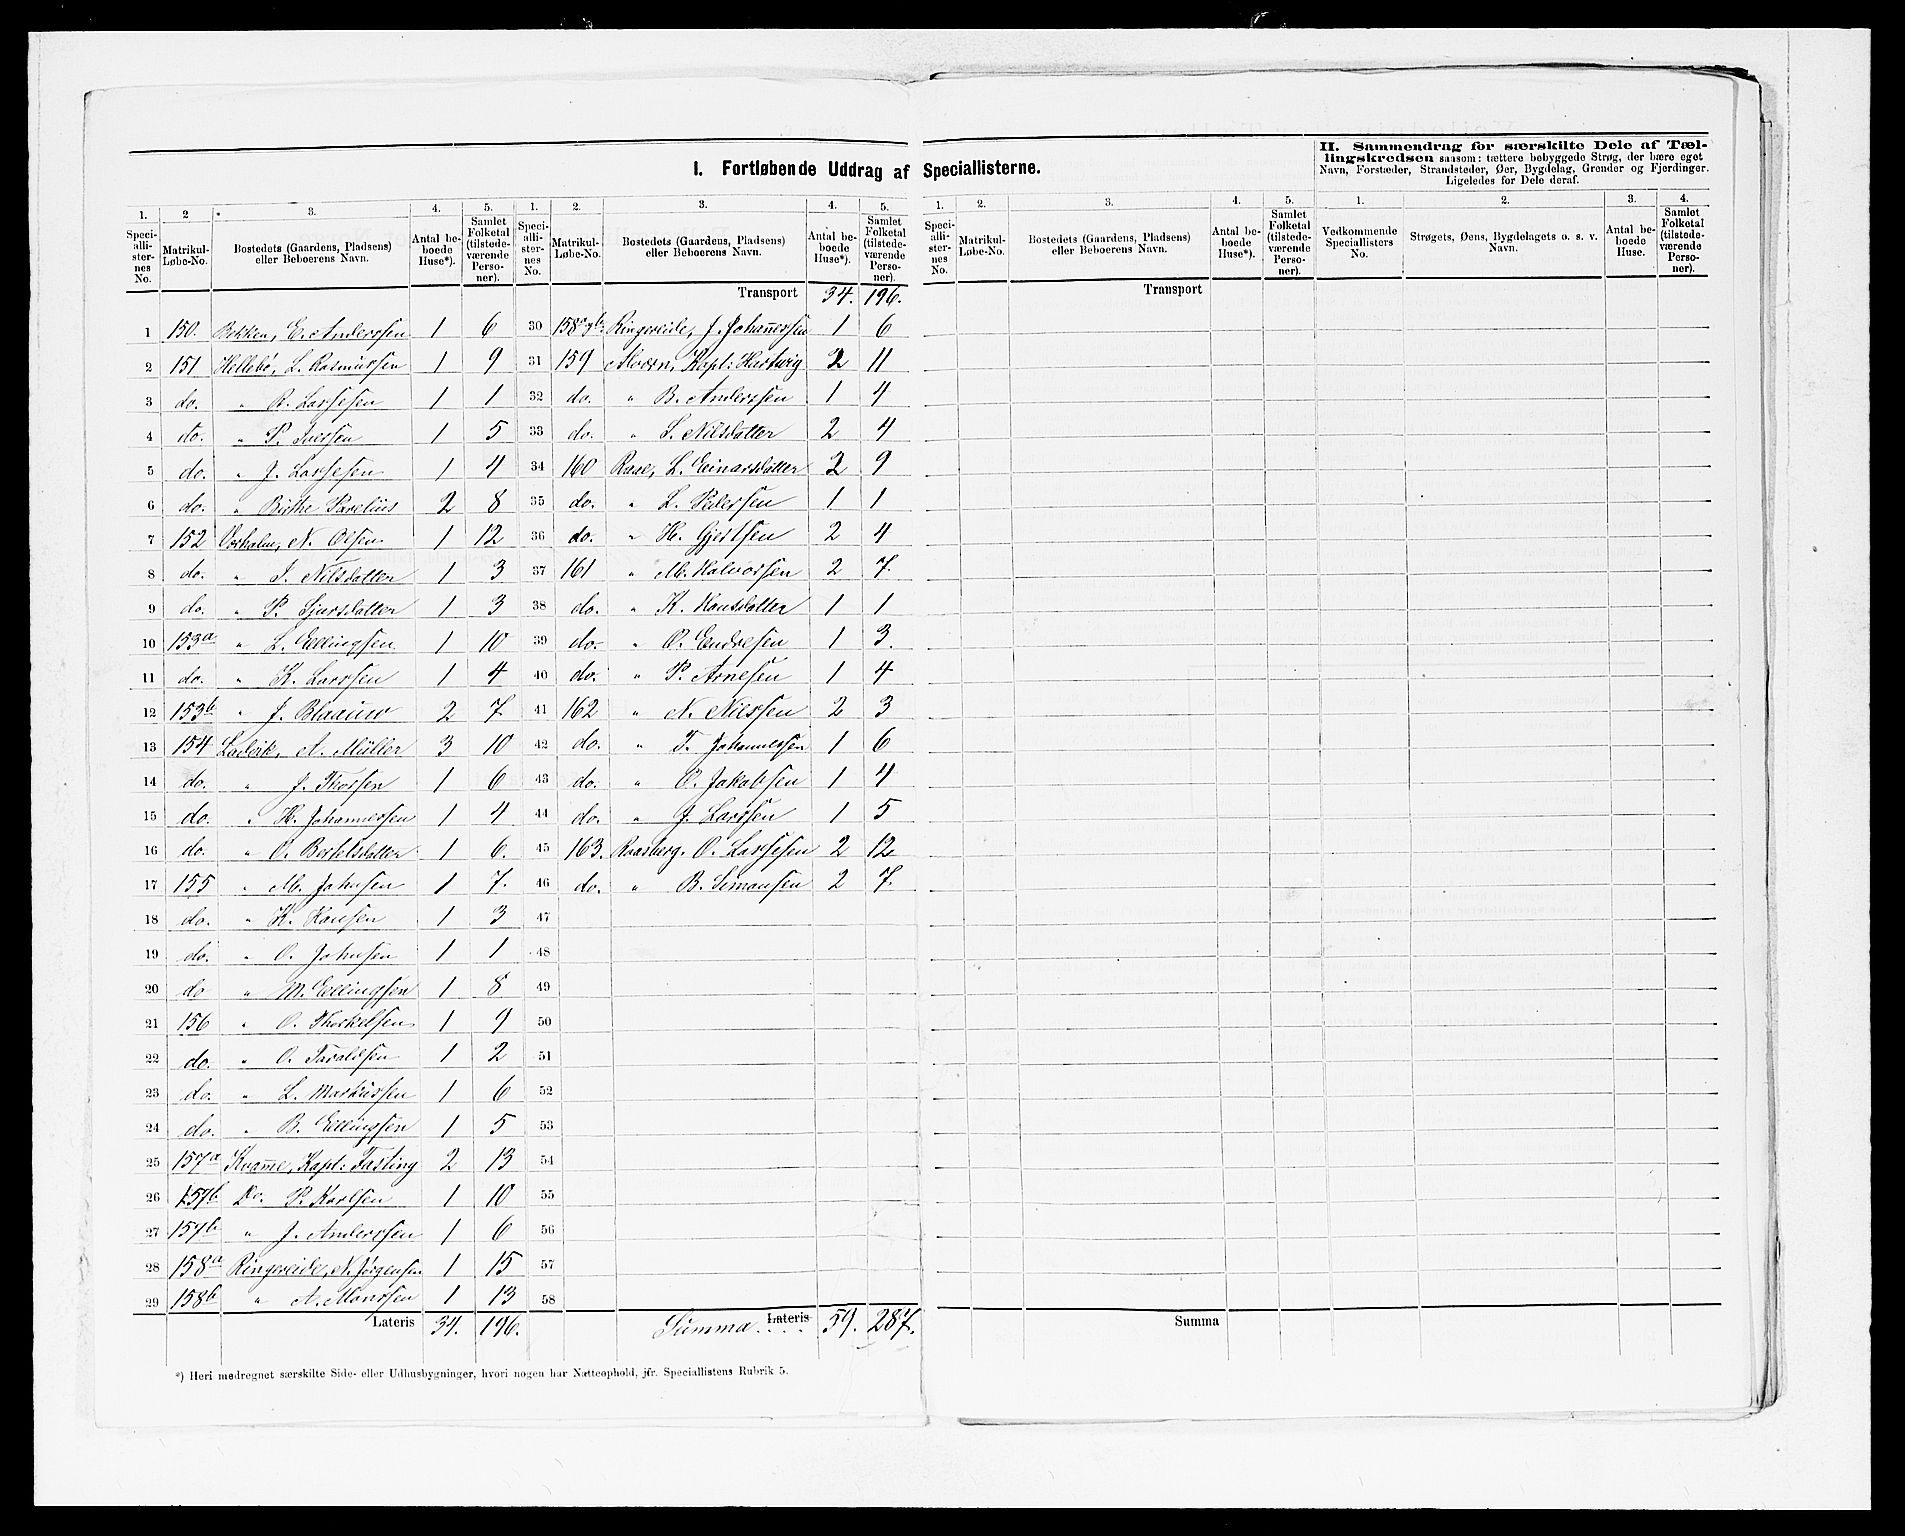 I. Fortløbende Uddrag af Speciallisterne.
II. Sammendrag for særskilte Dele af Tællingskredsen saasom: tættere bebyggede Strøg, der bære eget
Navn, Forstæder, Strandsteder, Øer, Bygdelag, Grender og Fjerdinger.
Ligeledes for Dele deraf.
1. 2 3. 4. 5. 1. 2. 3. 4. 5. 1. 2. 3. 4. 5. 1. 2. 3. 4.
Speciallisternes No. Matrikul-Løbe-No. Bostedets (Gaardens, Pladsens) eller Beboerens Navn. Antal beboede Huse*). Samlet Folketal (tilstedeværende Personer).
Speciallisternes No. Matrikul-Løbe-No. Bostedets (Gaardens, Pladsens) eller Beboerens Navn. Antal beboede Huse*). Samlet Folketal (tilstedeværende Personer).
Speciallisternes No. Matrikul-Løbe-No. Bostedets (Gaardens, Pladsens) eller Beboerens Navn. Antal beboede Huse*). Samlet Folketal (tilstedeværende Personer).
Vedkommende Speciallisters No. Strøgets, Øens, Bygdelagets o. s. v. Navn. Antal beboede Huse. Samlet Folketal (tilstedeværende Personer).
1 150. Bekken, E. Anderssen 1 6
2 151 Hellebø, L. Rasmussen 1 9
3 do. " R. Lassesen 1 1
4 do. " P. Iversen 1 5
5 do. " J. Lassesen 1 4
6 do. " Birthe Parelius 2 8
7 152 N. Olsen 1 12
8 do. " I. Nilsdatter 1 3
9 do. " P. Sjursdatter 1 3
10 153a " L. Ellingsen 1 10
11 do. " K. Larssen 1 4
12 153b " J. Blaauw 2 7
13 154 Ladvik, A. Müller 3 10
14 do. " J. Thorsen 1 6
15 do. " H. Johannessen 1 4
16 do. " O. Bertelsdatter 1 6.
17 155 " M. Johnsen 1 7.
18 do. " K. Hansen 1 3
19 do. " O. Johnsen 1 1
20 do " M. Ellingsen 1 8
21 156 " O. Thorkelsen 1 9
22 do. " O. Taraldsen 1 2
23 do. " L. Markussen 1 6
24 do. " B. Ellingsen 1 5
25 157a Kvamme, Kapt: Fasting 2 13
26 157b Do. P. Karlsen 1 10
27 157b " J. Anderssen 1 6
28 158a Ringereide, N. Jørgensen 1 15
29 158b " A. Monssen 1 13
Lateris 34. 196.
Transport 34. 196.
30 158a Ringereide, J. Johannessen 1 6
31 159 Alværn, Kapt: Hartwig 2 11
32 do. " B. Anderssen 1 4
33 do. " S. Nilsdatter 2 4
34 160 Raae, L. Einarsdatter 2 9
35 do. " L. Pedersen 1 1
36 do. " H. Gjertsen 2 4
37 161 " M. Halvorsen 2 7.
38 do. " K. Hansdatter 1 1
39 do. " O. Endresen 1 3.
40 do. " P. Arnesen 1 4
41 162 " N. Nilssen 2 3
42 do. " T. Johannessen 1 6
43 do. " O. Jakobsen 1 4
44 do. " J. Larssen 1 5
45 163. Raasberg. O. Lassesen 2 12
46 do. " B. Simonsen 2 7.
47
48
49
50
51
52
53
54
55
56
57
58
Lateris
Summa.... 59. 287.
Transport
Summa
*) Heri medregnet særskilte Side- eller Udhusbygninger, hvori nogen har Natteophold, jfr. Speciallistens Rubrik 5.